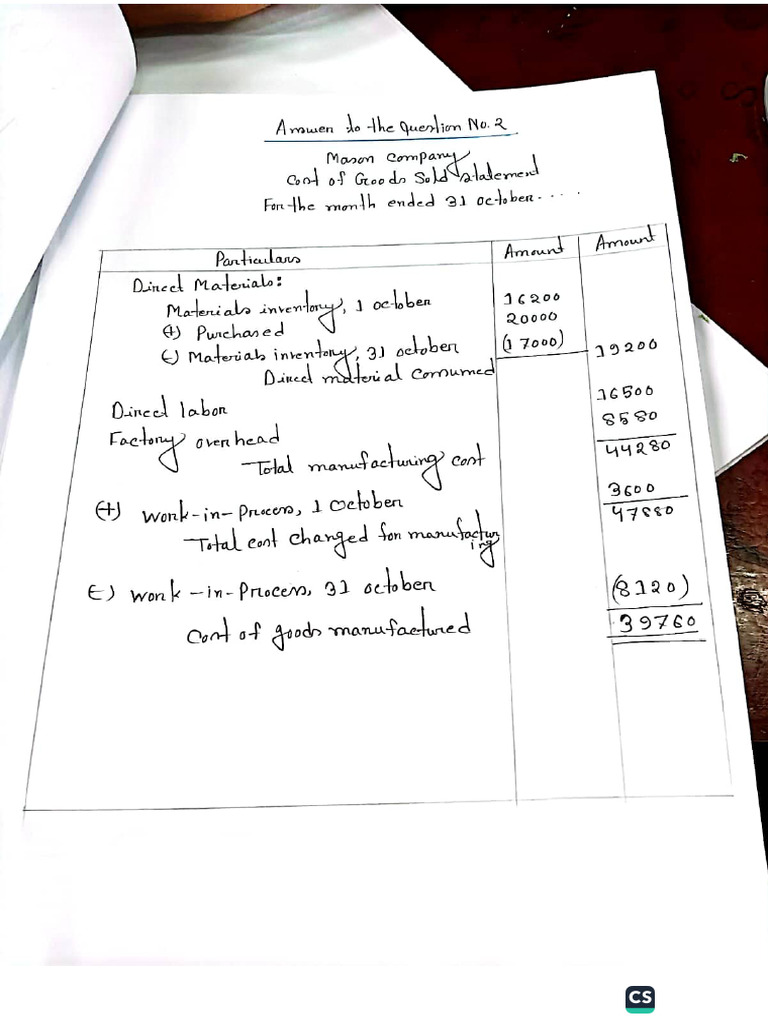 Answer to the Question No. 2
Mason Company
Cost of Goods Sold Statement
For the month ended 31 October.....
Particulars Amount Amount
Direct Materials:
Materials inventory, 1 October 16200
(+) Purchased 20000
(-) Materials inventory, 31 October (17000)
Direct material consumed 19200
Direct labor 16500
Factory overhead 8580
Total manufacturing cost 44280
(+) Work-in-Process, 1 October 3600
Total cost changed for manufacturing 47880
(-) Work-in-Process, 31 October (8120)
Cost of goods manufactured 39760
CS